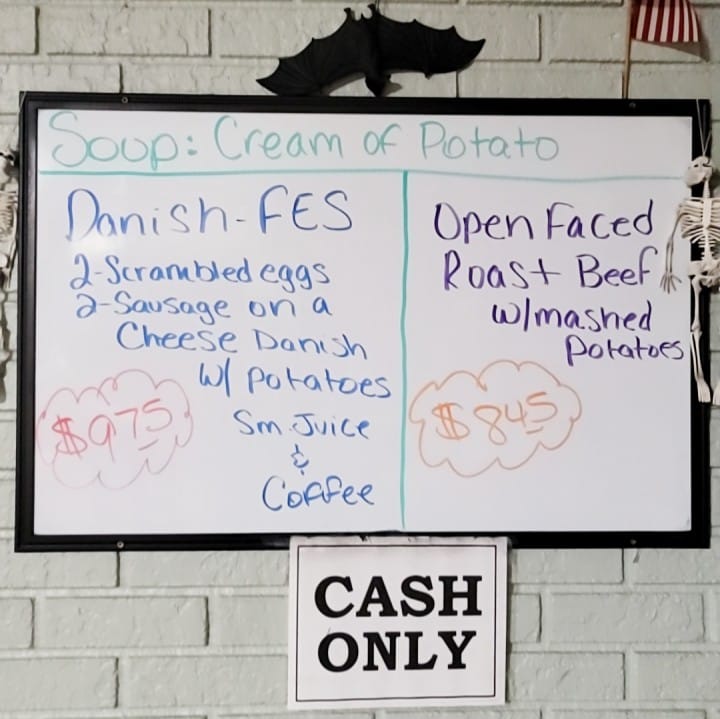 Soup: Cream of Potato
Danish-FES
2-Scrambled eggs
2-Sausage on a
Cheese Danish
w/ potatoes
$975
Sm. Juice
&
Coffee
Open Faced
Roast Beef
w/mashed
potatoes
$845
CASH
ONLY